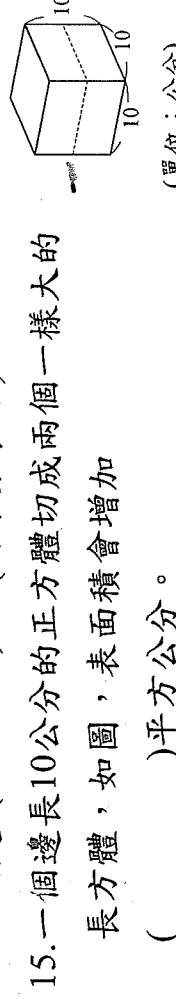 15.一個邊長10公分的正方體切成兩個一樣大的
長方體,如圖,表面積會增加
(　　　)平方公分。
10
10
10
(單位:公分)